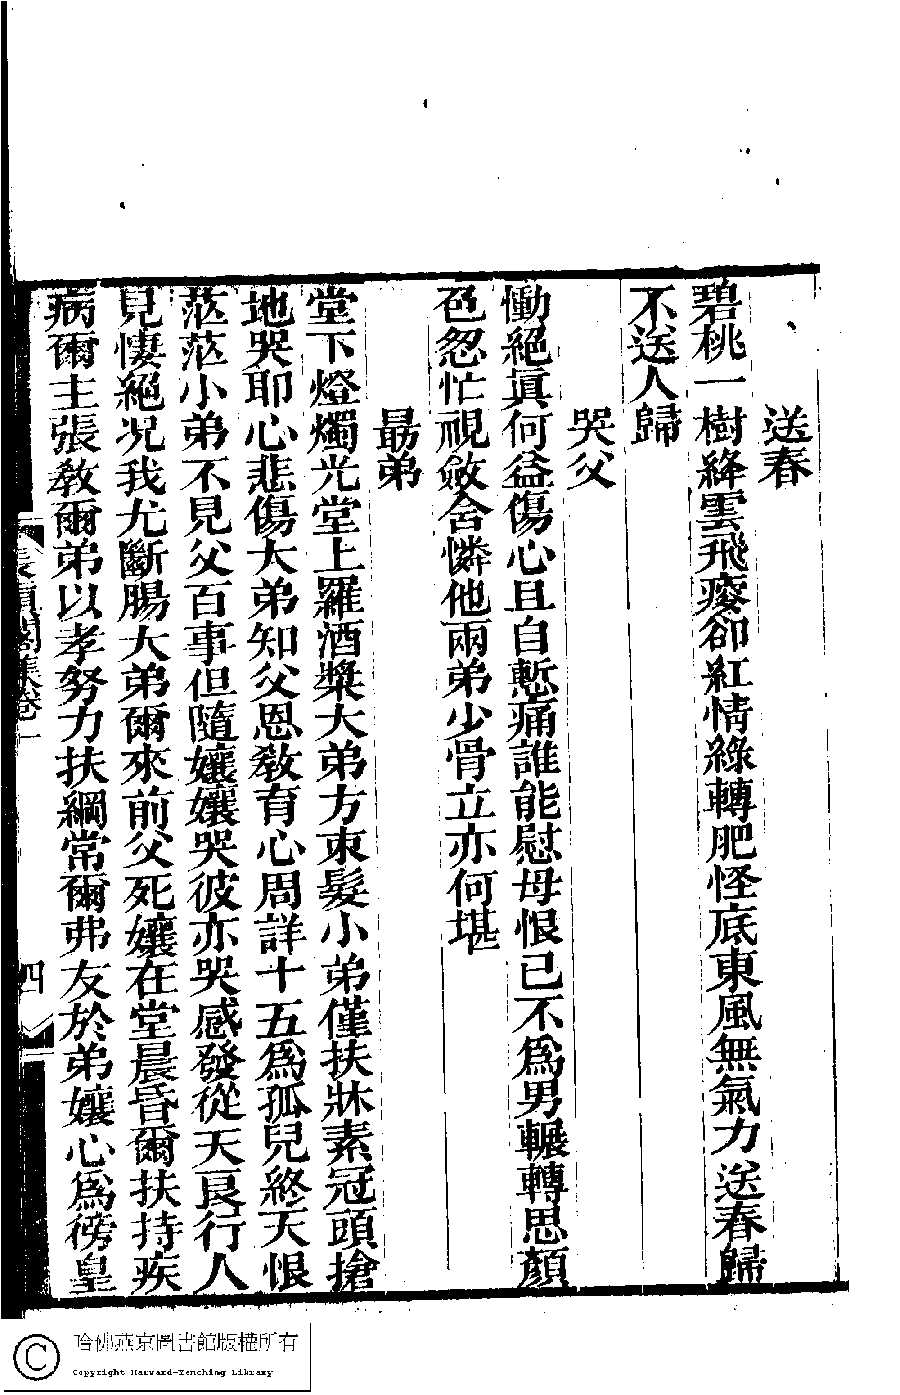 送春
碧桃一樹絳雲飛瘦卻紅情綠轉肥怪底東風無氣力送春歸
不送人歸
哭父
慟絕眞何益傷心且自慙痛誰能慰母恨已不爲男輾轉思顏
色忽忙視斂含憐他兩弟少骨立亦何堪
勗弟
堂下燈燭光堂上羅酒漿大弟方束髮小弟僅扶牀素冠頭搶
地哭耶心悲傷大弟知父恩敎育心周詳十五爲孤兒終天恨
茫茫小弟不見父百事但隨孃孃哭彼亦哭感發從天良行人
見悽絕況我尤斷腸大弟爾來前父死孃在堂晨昏爾扶持疾
病爾主張敎爾弟以孝努力扶綱常爾弗友於弟孃心爲徬皇
閣集卷一
四
哈佛燕京圖書館版權所有
Copyright Harvard-Yenching Library